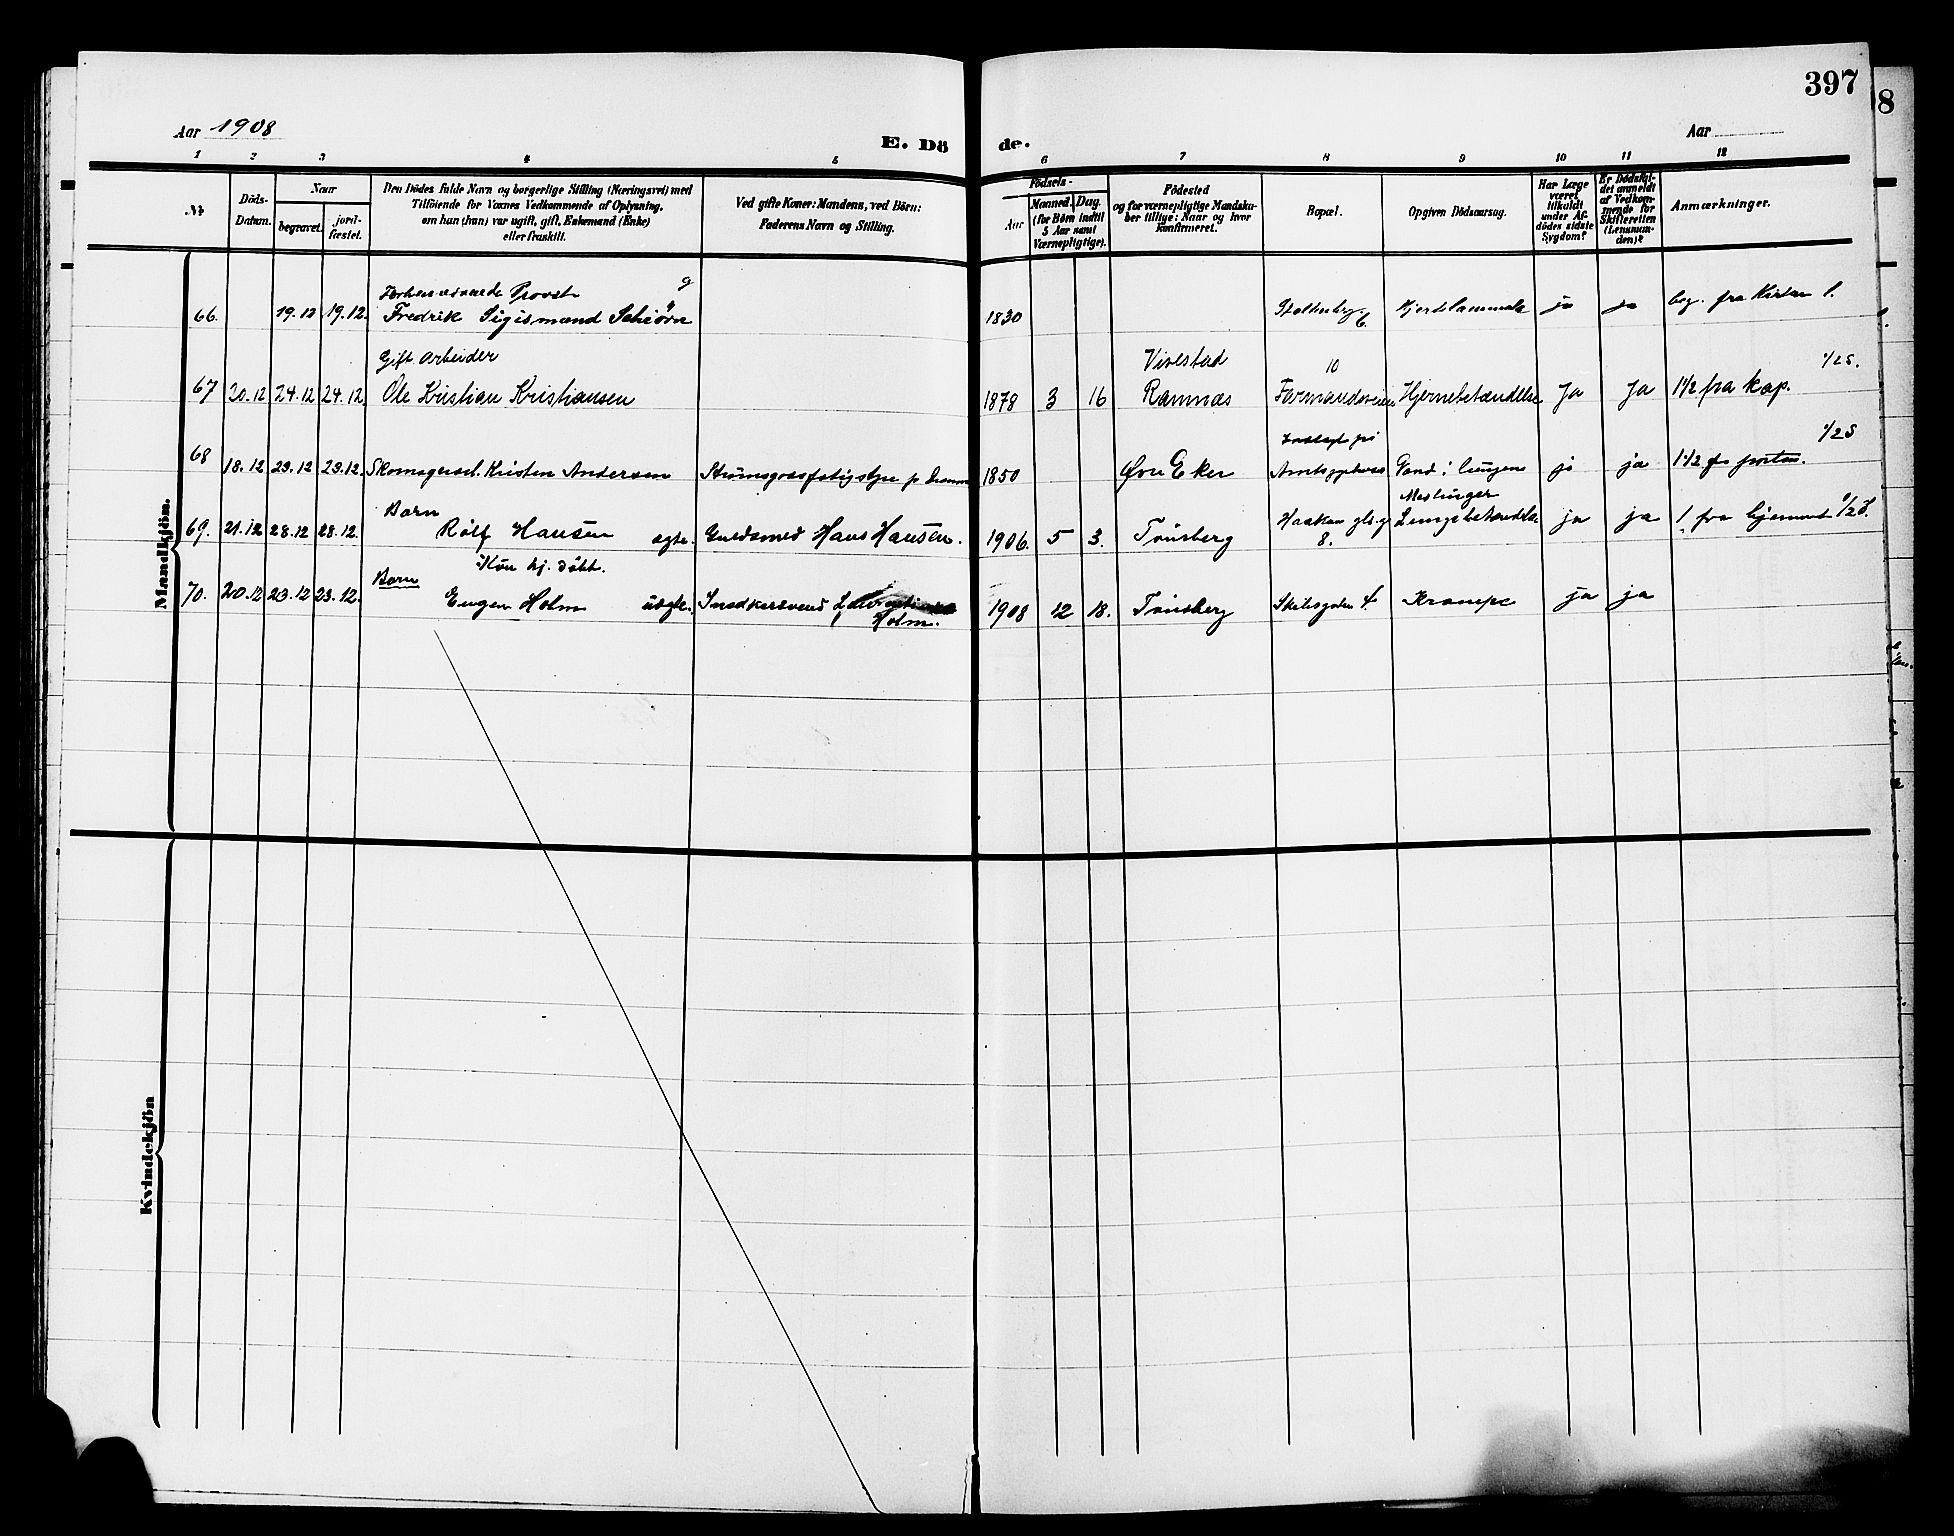 397
8
Aar 1908
E. Dö
de.
Aar
1 2 3 4 5 6 7 8 9 10 11 12
№
Döds-Datum.
Naar
begravet.
jord-fæstet.
Den Dödes fulde Navn og borgerlige Stilling (Næringsvei) med
Tilföiende for Voxnes Vedkommende af Oplysning,
om hun (han) var ugift, gift, Enkemand (Enke)
eller fraskilt.
Ved gifte Koner: Mandens, ved Börn:
Faderens Navn og Stilling.
Födsels-
Aar
Maaned. Dag.
(for Börn indtil
5 Aar samt
Værnepligtige).
Födested
og for værnepligtige Mandska-
ber tillige: Naar og hvor
konfirmeret.
Bopæl.
Opgiven Dödsaarsag.
Har Læge
været
tilkaldt
under Af-
dödes sidste
Sygdom?
Er Dödsfal-
det anmeldt
af Vedkom-
mende for
Skifteretten
(Lensman-
den)?
Anmærkninger.
Mandkjön.
Provst
66. 19.12 19.12. Fredrik Sigismund Schiörn 1830 6. Hjertelammelse ja ja beg. fra Kirken 1.
Gift Arbeider Vivestad 10 1/2 S.
67 20.12 24.12 24.12. Ole Kristian Kristiansen 1878 3 16 Ramnæs Farmandsveien Hjernebetændelse Ja Ja 1 1/2 fra kap.
Indlagt på 1/2 S
68 18.12 23.12 23.12. Kristen Andersen 1850 Øvre Eker Vand i lungen ja ja 1 1/2
Barn Meslinger
69. 21.12 28.12 28.12. Rolf Hansen ægte. Guldsmed Hans Hansen. 1906. 5 3. Tönsberg Haakon 8. Lungebetændelse ja ja 1 fra hjemmet 1/2 S.
Kun hj. döbt.
Barn
70. 20.12 23.12 23.12. Eugen Holm uægte. Snedkersvend Holm. 1908 12 18. Tönsberg 4. Krampe ja ja
Kvindekjön